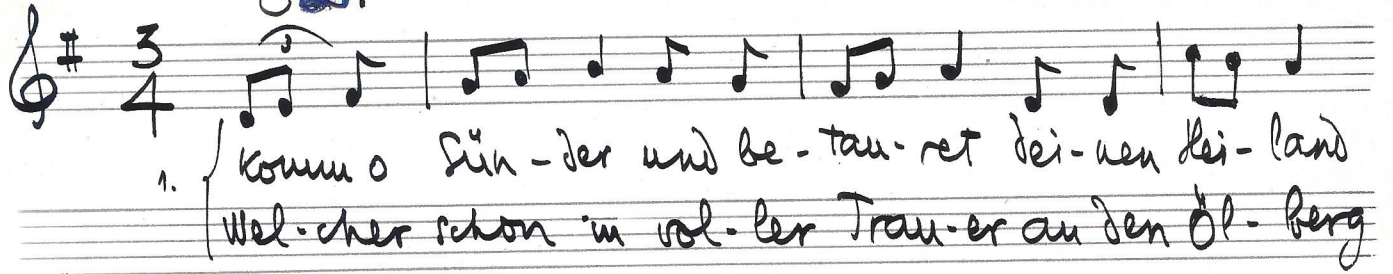 3
3
4
Komm o Sün-der und be-tau-ret dei-nen Hei-land
1.
Wel-cher schon in vol-ler Trau-er an den Öl-berg